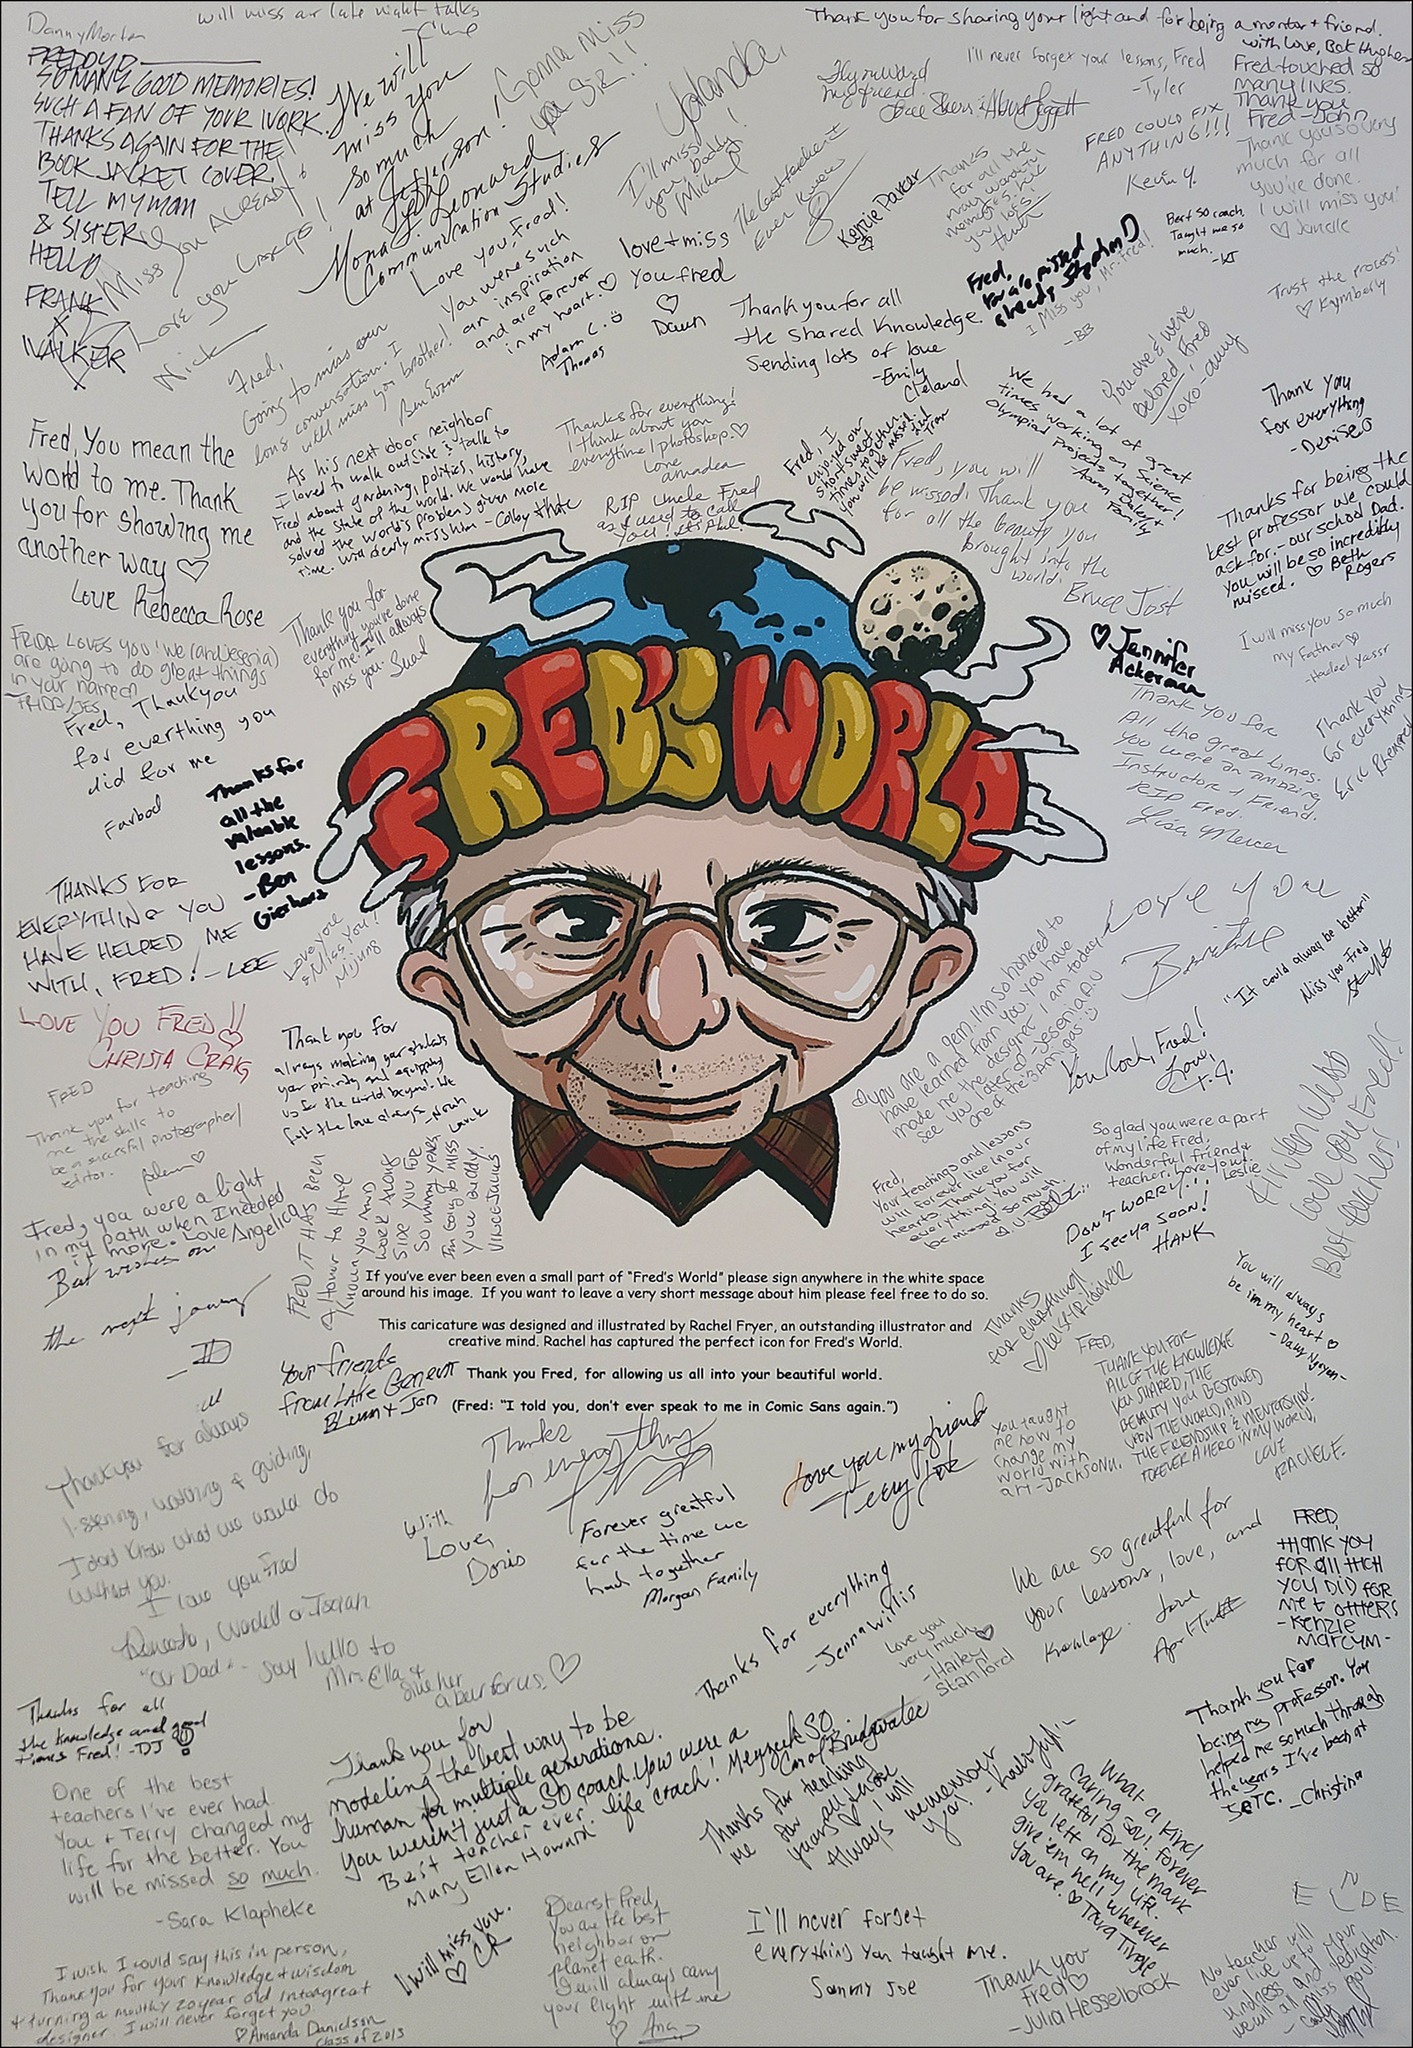 Danny Morten
will miss our late night talks
FREDDY D
SO MANY GOOD MEMORIES!
SUCH A FAN OF YOUR WORK.
THANKS AGAIN FOR THE
BOOK JACKET COVER.
TELL MY MAN
& SISTER
HELLO
FRANK
WALKER
We will
miss you
so much
at Jefferson!
Mona Leonard
Communication Studies
Gonna Miss
you Sir!!
Yolanda
I'll miss
you, buddy!
Michael
Thank you for sharing your light and for being a mentor + friend.
with love, Bek Hughes
I'll never forget your lessons, Fred
-Tyler
Fred touched so
many lives.
Thank you
Fred-John
FRED COULD FIX
ANYTHING!!!
Kevin Y.
Thank you so very
much for all
you've done.
I will miss you!
♡ Janelle
Kenzie Parker
Best SO coach.
Taught me so
much.
Miss you ALREADY
Love you
Nick
Love you, Fred!
You were such
an inspiration
and are forever
in my heart.♡
Adam C.
Thomas
love + miss
you fred
♡
Dawn
Fred,
You are missed
already Stephen D
I Miss you, Mr. Fred!
-BB
Trust the process!
♡ Kaymberly
Thank you for all
the shared knowledge.
Sending lots of love
-Emily
Cleland
You are & were
beloved, Fred
xoxo-amy
Fred,
Going to miss our
long conversations. I
will miss you brother!
Ben Evans
We had a lot of great
times working on Science
Olympiad projects together!
-Aaron Dalent
Family
Thank you
for everything
-Denise O
Fred, You mean the
world to me. Thank
you for showing me
another way ♡
Love Rebecca Rose
As his next door neighbor
I loved to walk outside & talk to
Fred about gardening, politics, history,
and the state of the world. We would have
solved the world's problems given more
time. Will dearly miss him - Colby & Kate
Thanks for everything!
I think about you
everytime I photoshop.♡
Love
amadea
RIP Uncle Fred
as I used to call
you!
Fred, I
enjoyed our
short sweet
times together.
You will be missed.
Fred, you will
be missed. Thank you
for all the beauty you
brought into the
world.
Bruce Jost
Thanks for being the
best professor we could
ask for - our school Dad.
You will be so incredibly
missed. ♡ Beth
Rogers
Thank you for
everything you've done
for me. I'll always
miss you. Suad
♡ Jennifer
Ackerman
I will miss you so much
my Father ♡
-Hadeel Yassr
FRIDA LOVES YOU! We (and Jesenia)
are going to do great things
in your name
-FRIDA/JES
Fred, Thank you
for everthing you
did for me
Farbod
Thanks for
all the
valuable
lessons.
-Ben
Gierhart
FRED'S WORLD
Thank you for
All the great times.
You were an amazing
Instructor + Friend.
RIP Fred.
Lisa Mercer
Thank you
for everything
THANKS FOR
EVERYTHING YOU
HAVE HELPED ME
WITH, FRED! -LEE
Love you
& Miss you!
Mijung
Love you
"It could always be better"
Miss you Fred
LOVE YOU FRED!!
♡
CHRISTA CRAIG
Thank you for
always making your students
your priority and equipping
us for the world beyond. We
felt the love always -Noah
♡ you are a gem. I'm so honored to
have learned from you. you have
made me the designer I am today.
See you later
one of the 3 Amigos
You Rock, Fred!
Love,
T.J.
FRED
Thank you for teaching
me the skills to
be a successful photographer/
Editor.
Fred, you were a light
in my path when I needed
it more. Love Angelica
Best wishes on
the next journey
-JD
FRED IT HAS BEEN
A Honor to HAVE
Known you AND
work Along
SIDE you FOR
So mANY years
I'm Going to miss
your Buddy
VINCE
Fred,
Your teachings and lessons
will forever live in our
hearts. Thank you for
everything! You will
be missed so much.
So glad you were a part
of my life Fred.
Wonderful friend &
teacher. Love you!
Leslie
DON'T WORRY...
I see ya soon!
HANK
Allison Webb
Love you Fred!
Best teacher!
If you've ever been even a small part of "Fred's World" please sign anywhere in the white space
around his image. If you want to leave a very short message about him please feel free to do so.
This caricature was designed and illustrated by Rachel Fryer, an outstanding illustrator and
creative mind. Rachel has captured the perfect icon for Fred's World.
Thank you Fred, for allowing us all into your beautiful world.
(Fred: "I told you, don't ever speak to me in Comic Sans again.")
Thanks
FOR EVERYTHING!
You will always
be in my heart ♡
- Dany Nguyen-
Your friends
from Lake Geneva
FRED,
THANK YOU FOR
ALL OF THE KNOWLEDGE
YOU SHARED, THE
BEAUTY YOU BESTOWED
UPON THE WORLD, AND
THE FRIENDSHIP & MENTORSHIP!
FOREVER A HERO IN MY WORLD,
LOVE
RACHEL F.
You taught
me how to
change my
world with
art-Jackson U.
Love you my friend
Thanks
for everything
With
Love,
Doris
Forever greatful
for the time we
had together
Morgan Family
Thank you for always
listening, working & guiding,
I dont know what we would do
without you.
I love you Fred
"Our Dad" - say hello to
Mrs. Ella &
give her
a bear for us. ♡
Thanks for everything
-Jenna Willis
Love you
very much ♡
-Hailey
Stanford
We are so greatful for
your lessons, love, and
knowledge. Love
FRED,
THANK YOU
FOR All THAT
YOU DID FOR
ME & OTHERS
-KENZIE
MARCYM-
Thanks for all
the knowledge and good
times Fred! -DJ
One of the best
teachers I've ever had.
You + Terry changed my
life for the better. You
will be missed so much.
-Sara Klapheke
Thank you for
modeling the best way to be
human for multiple generations.
You weren't just a SO coach. You were a
life coach! Meyzeek SO
Best teacher ever.
Mary Ellen Howard
Carol Bridgwater
Thanks for teaching
me for
years all those
♡ I will
Always remember
you!
What a kind
caring soul! Forever
grateful for the mark
you left on my life.
Give 'em hell wherever
you are. ♡ Tara Tingle
Thank you for
being my professor. You
helped me so much through
the years I've been at
JCTC. -Christina
I wish I could say this in person,
Thank you for your knowledge + wisdom
& turning a mouthy 20 year old into a great
designer. I will never forget you.
♡ Amanda Danielson
class of 2013
I will miss you.
♡ CR
Dearest Fred,
You are the best
neighbor on
planet earth.
I will always carry
your light with me
♡ Ana
I'll never forget
everything you taught me.
Sammy Joe
Thank you
Fred ♡
-Julia Hesselbrock
No teacher will
ever live up to your
kindness and dedication.
We will all miss you!